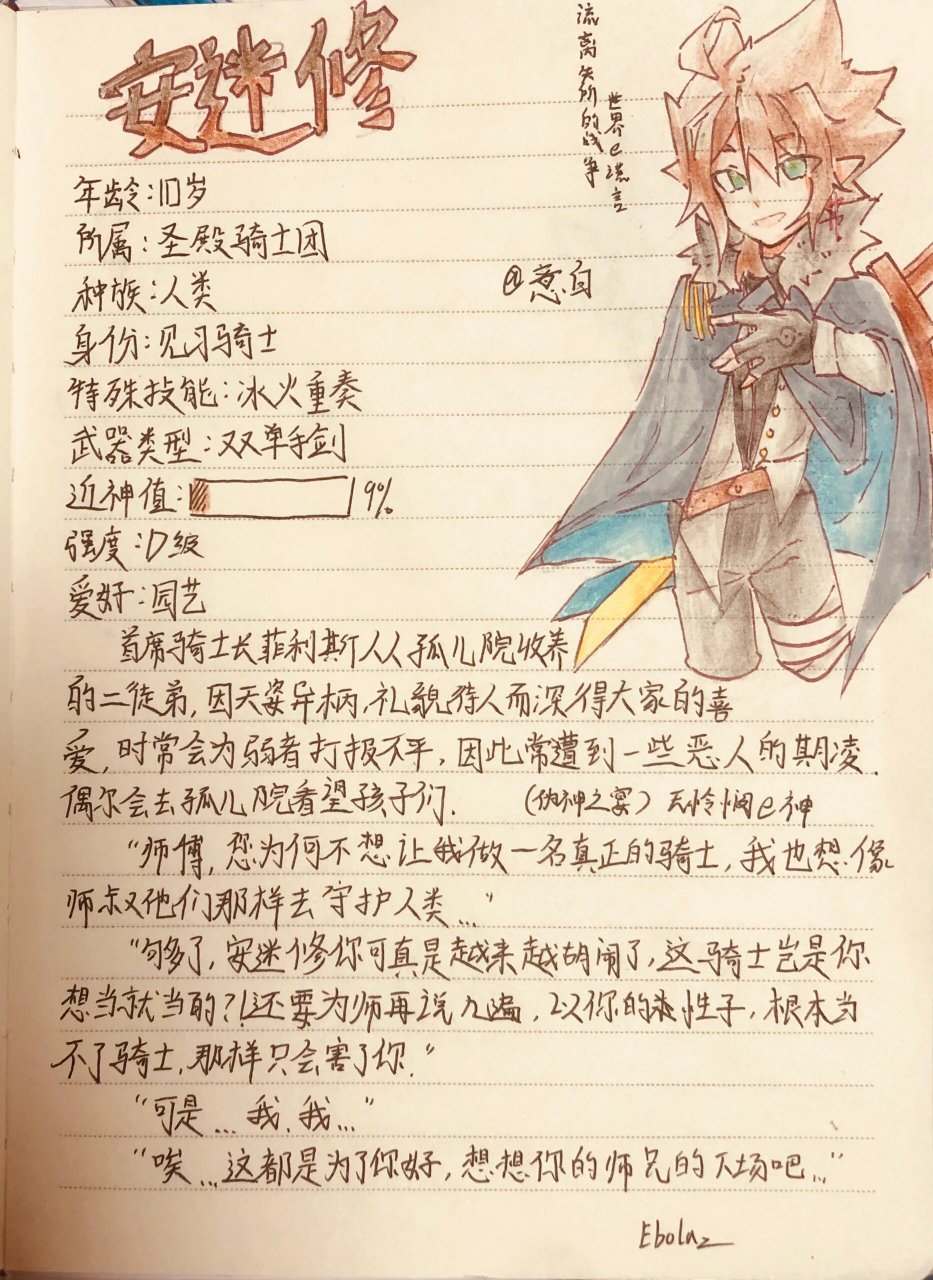 安迷修
流离失所的战争
世界e流言
年龄:10岁
所属:圣殿骑士团
@葱白
种族:人类
身份:见习骑士
特殊技能:冰火重奏
武器类型:双单手剑
近神值: 9%
强度:D级
爱好:园艺
首席骑士长菲利斯从孤儿院收养
的二徒弟,因天姿异柄,礼貌待人而深得大家的喜
爱,时常会为弱者打报不平,因此常遭到一些恶人的期凌.
偶尔会去孤儿院看望孩子们.
(伪神之宴)天怜悯e神
“师傅,您为何不想让我做一名真正的骑士,我也想像
师叔他们那样去守护人类...”
“够了,安迷修你可真是越来越胡闹了,这骑士岂是你
想当就当的?!还要为师再说几遍,以你的性子,根本当
不了骑士,那样只会害了你.”
“可是...我.我...”
“唉...这都是为了你好,想想你的师兄的下场吧...”
Ebola